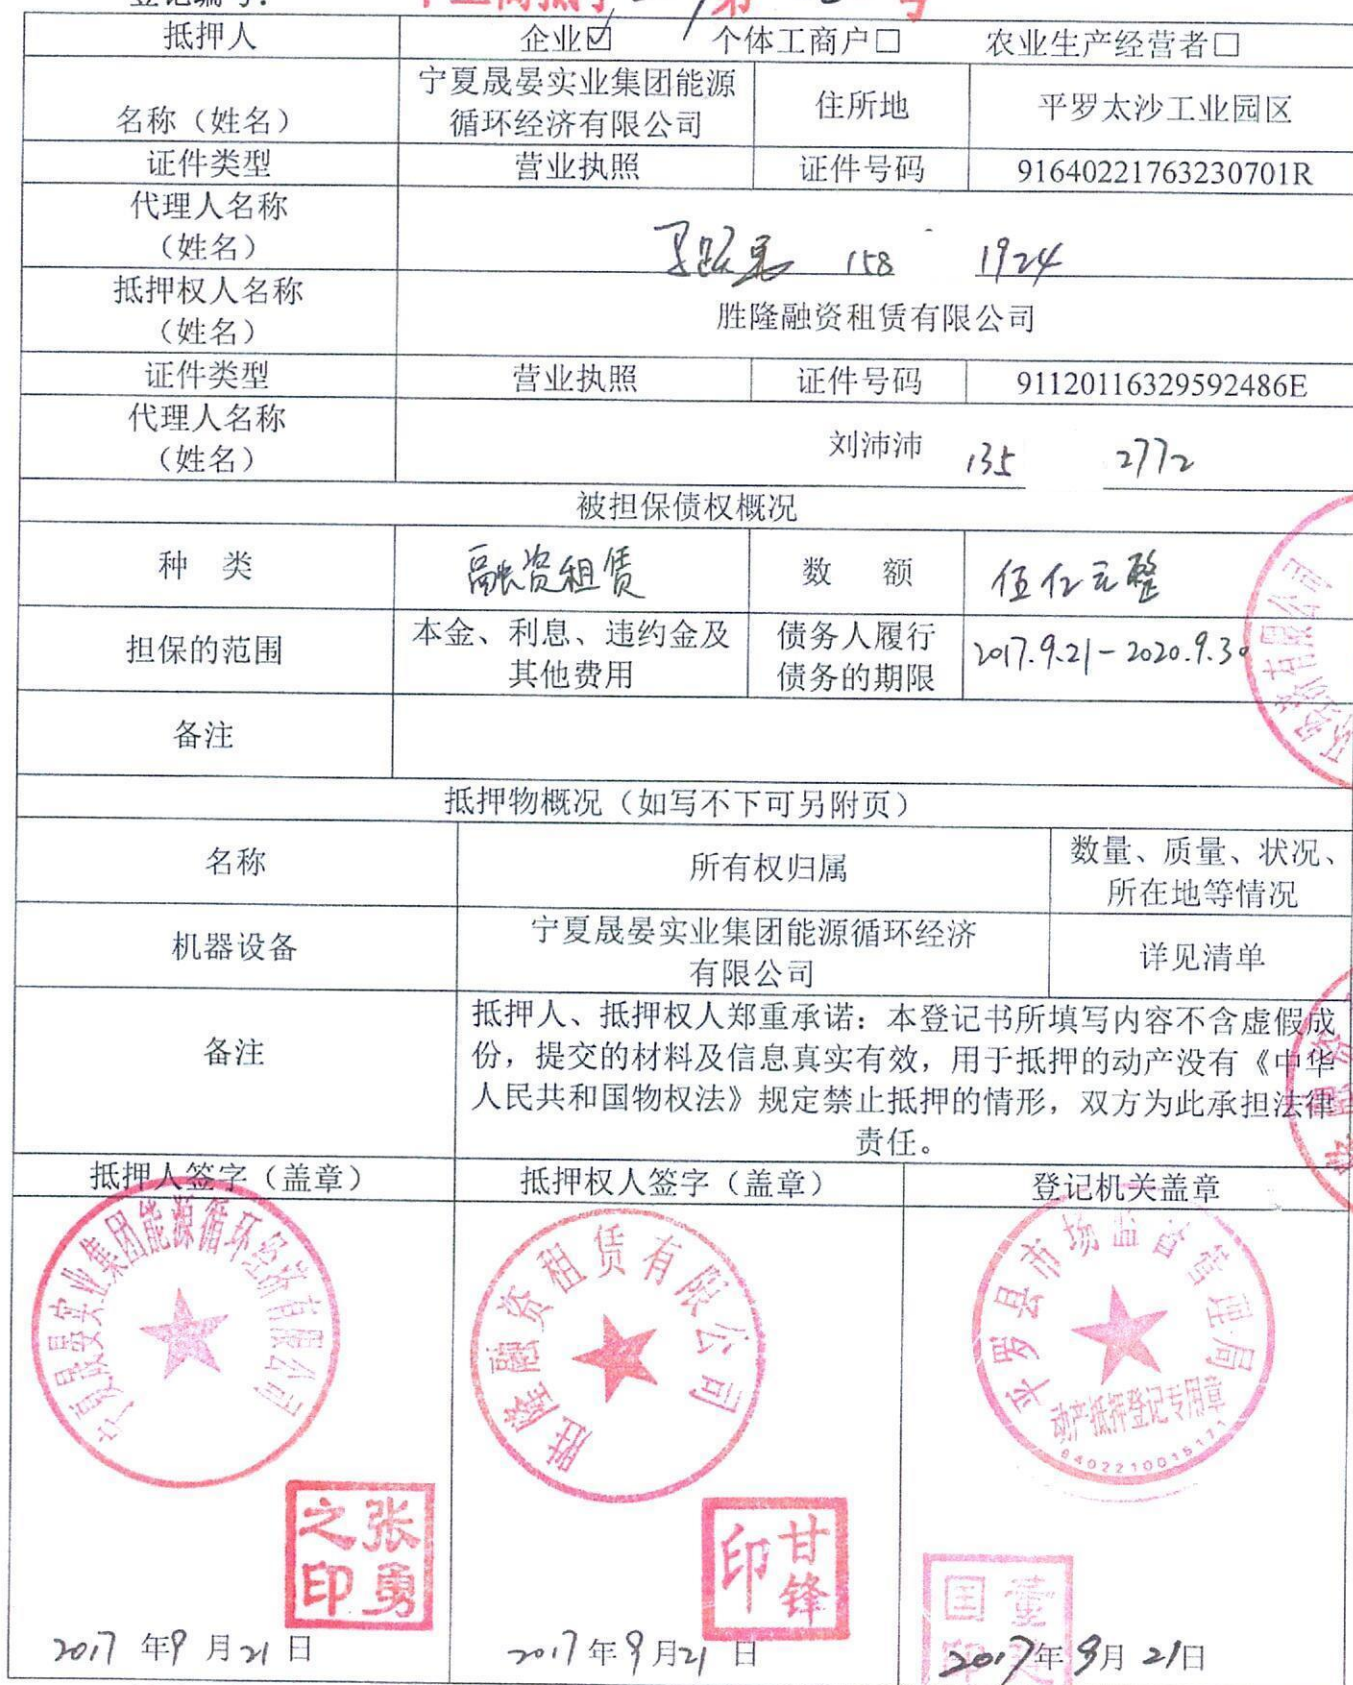 登记编号：
抵押人 企业☑ 个体工商户□ 农业生产经营者□
名称（姓名） 宁夏晟晏实业集团能源循环经济有限公司 住所地 平罗太沙工业园区
证件类型 营业执照 证件号码 91640221763230701R
代理人名称
（姓名） 158 1924
抵押权人名称
（姓名） 胜隆融资租赁有限公司
证件类型 营业执照 证件号码 91120116329592486E
代理人名称
（姓名） 刘沛沛 135 2772
被担保债权概况
种 类 融资租赁 数 额 伍亿元整
担保的范围 本金、利息、违约金及其他费用 债务人履行债务的期限 2017.9.21-2020.9.30
备注
抵押物概况（如写不下可另附页）
名称 所有权归属 数量、质量、状况、所在地等情况
机器设备 宁夏晟晏实业集团能源循环经济有限公司 详见清单
备注
抵押人、抵押权人郑重承诺：本登记书所填写内容不含虚假成
份，提交的材料及信息真实有效，用于抵押的动产没有《中华
人民共和国物权法》规定禁止抵押的情形，双方为此承担法律
责任。
抵押人签字（盖章） 抵押权人签字（盖章） 登记机关盖章
宁夏晟晏实业集团能源循环经济有限公司
胜隆融资租赁有限公司
平罗县市场监督管理局
动产抵押登记专用章
张勇之印
甘锋印
2017 年9 月21 日 2017年9月21日 2017年9月21日